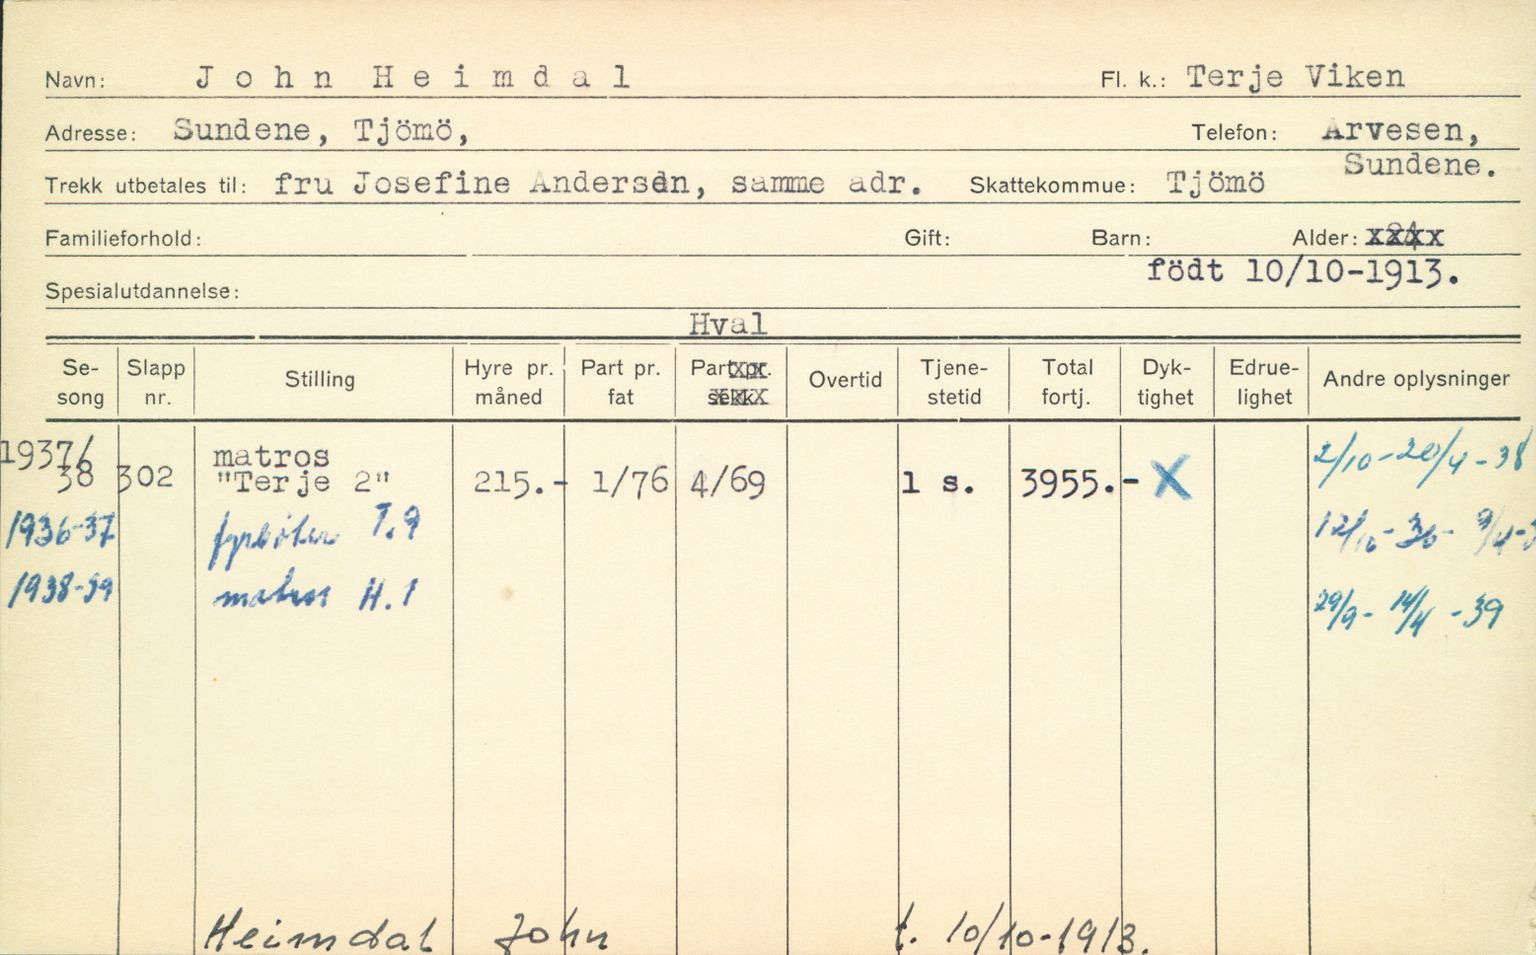 Navn: John Heimdal Fl. k.: Terje Viken
Adresse: Sundene, Tjömö, Telefon: Arvesen,
Sundene.
Trekk utbetales til: fru Josefine Andersen, samme adr. Skattekommue: Tjömö
Familieforhold: Gift: Barn: Alder: 24
födt 10/10-1913.
Spesialutdannelse:
Hval
Se-song Slapp nr. Stilling Hyre pr. måned Part pr. fat Part pr. sekk Overtid Tjene-stetid Total fortj. Dyk-tighet Edrue-lighet Andre oplysninger
1937/38 302 matros "Terje 2" 215.- 1/76 4/69 1 s. 3955.- X 2/10-20/4-38
1936-37 fyrbøter T.9 12/10-36- 9/4-3
1938-39 matros H.1 29/9- 14/4 -39
Heimdal John f. 10/10-1913.